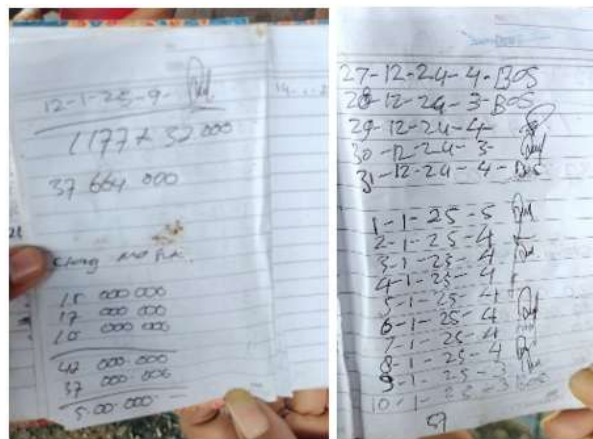 12-1-25-9-
1177 x 32 000
37 664 000
15 000 000
17 000 000
10 000 000
42 000.000
37 000.000
5.00.000.-
27-12-24-4-BOS
28-12-24-3-BOS
29-12-24-4-
30-12-24-3-
31-12-24-4-BOS
1-1-25-5
2-1-25-4
3-1-25-4
4-1-25-4
5-1-25-4
6-1-25-4
7-1-25-4
8-1-25-4
9-1-25-3
10-1-25-3 BOS
57